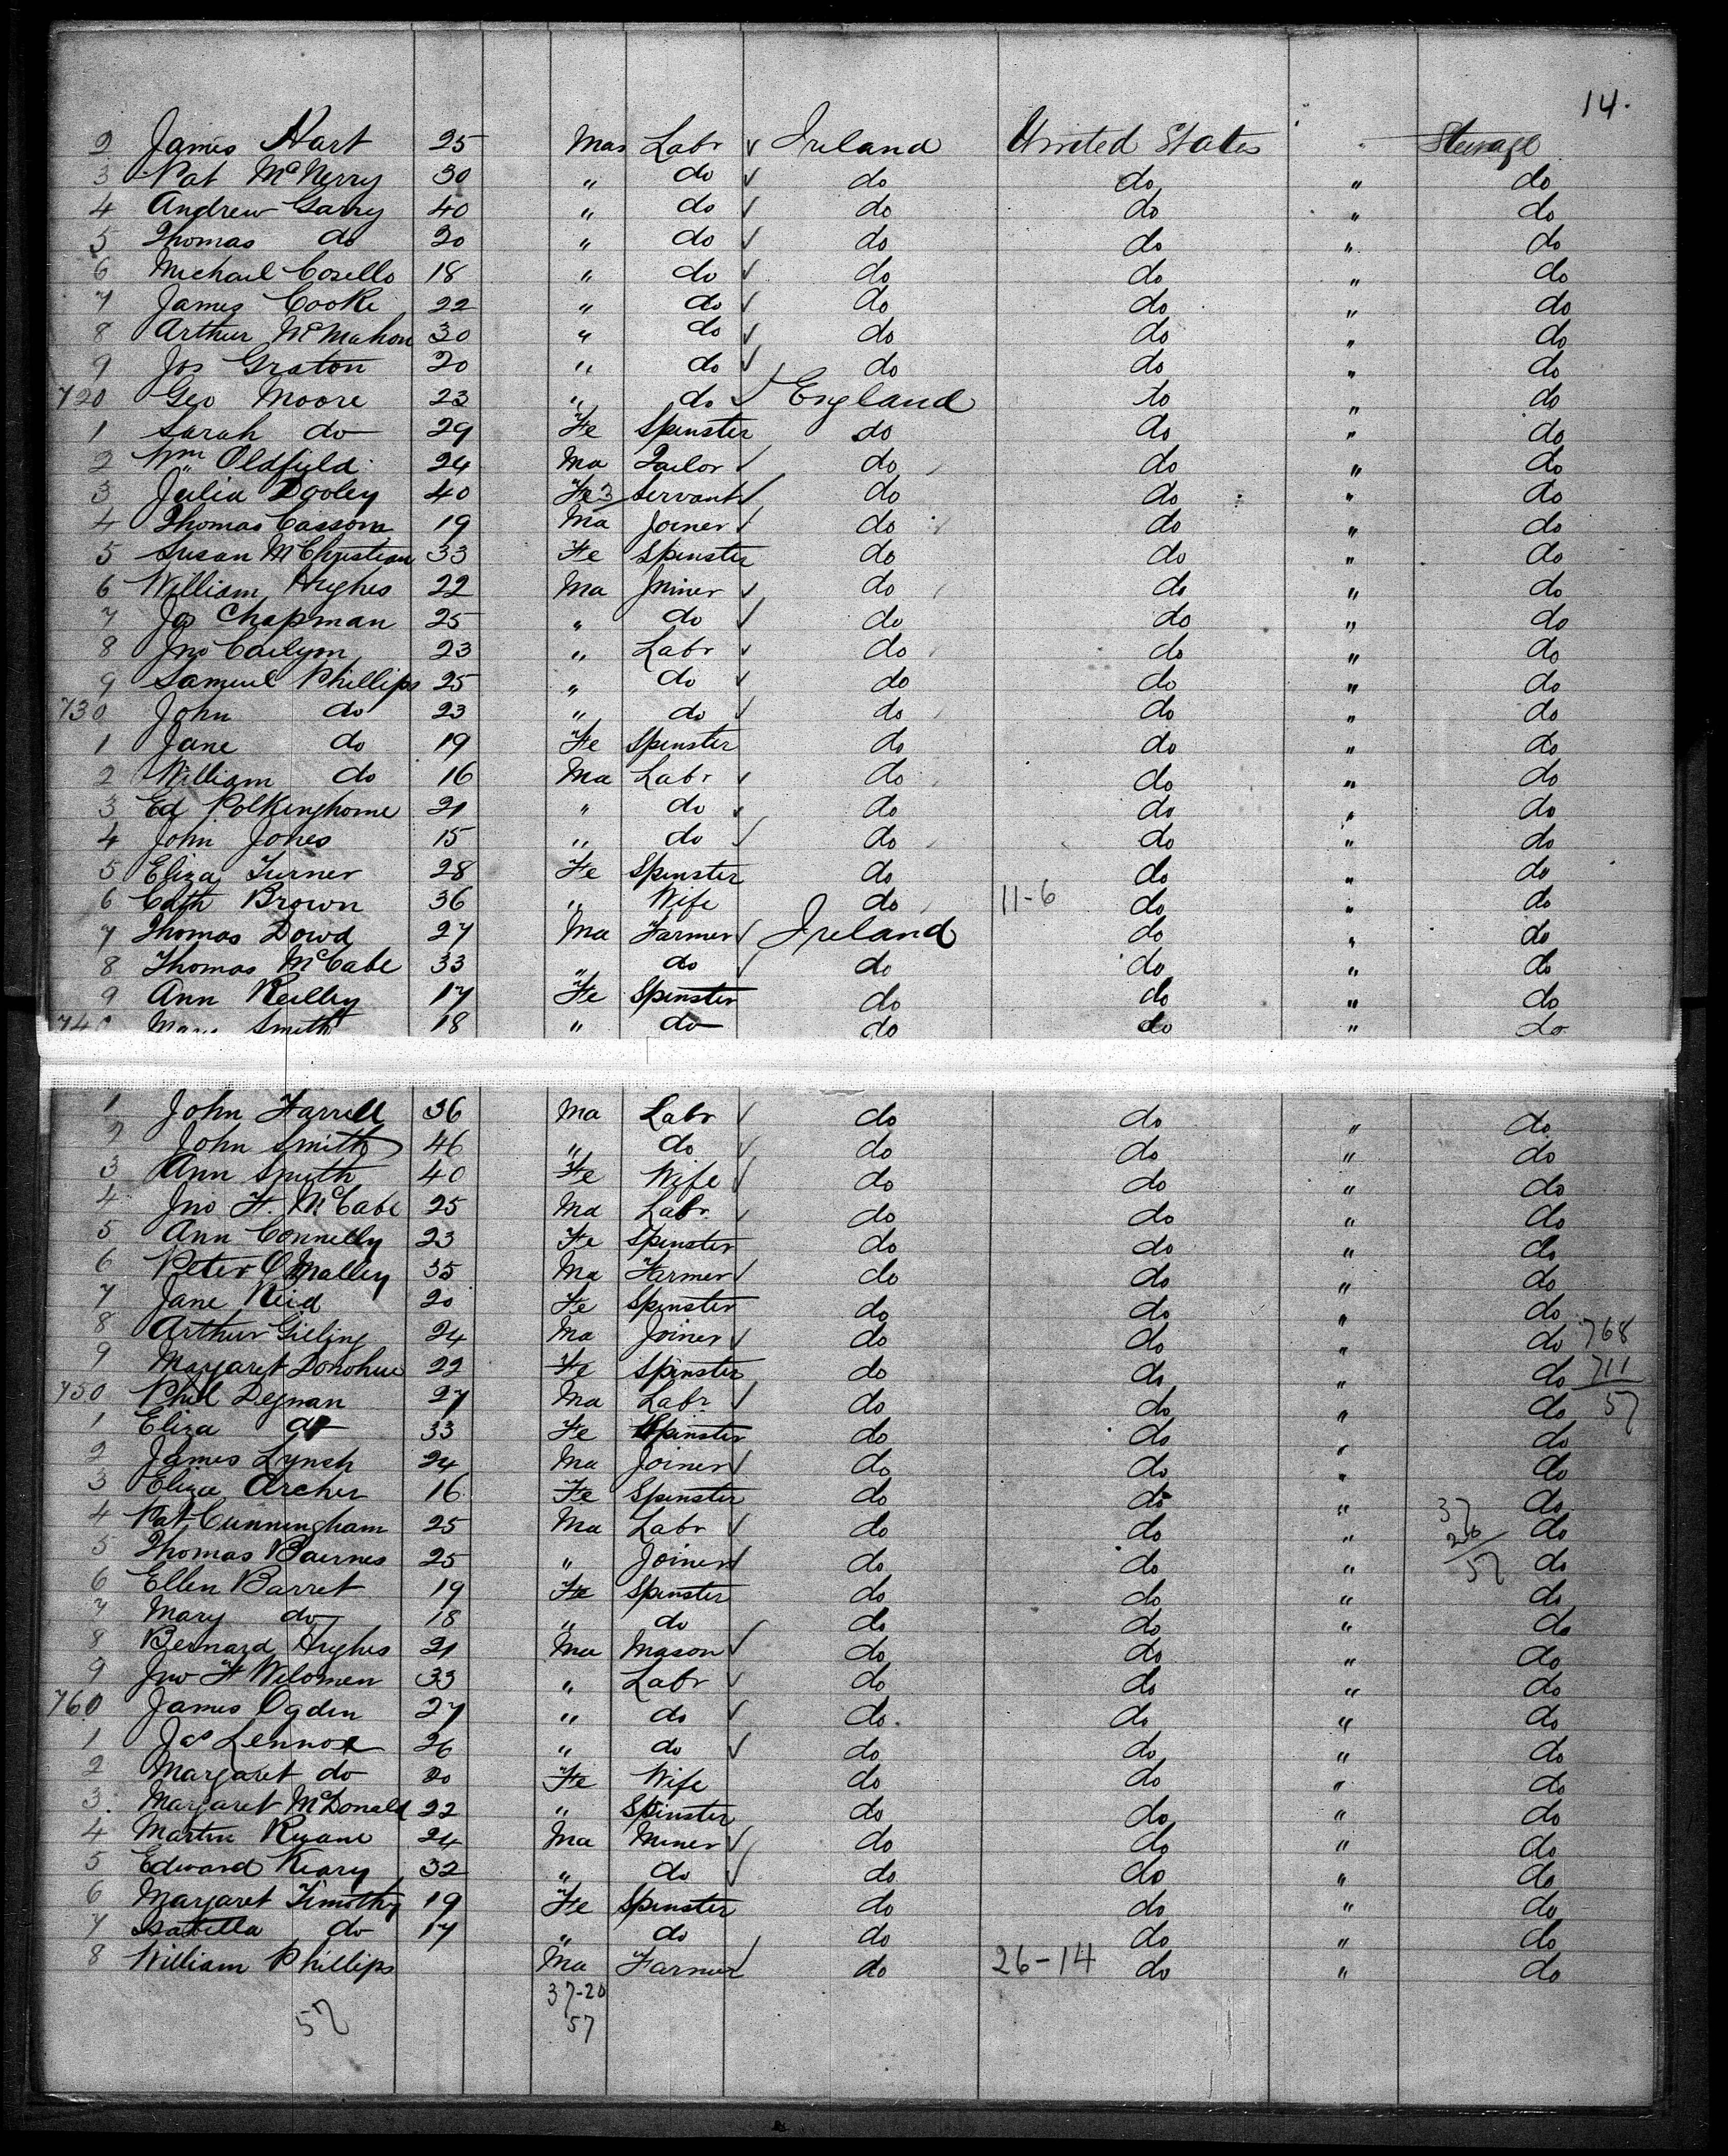 14.
2 James Hart 25 Mas Labr ✓ Ireland United States " Steerage
3 Pat McNerry 30 " do ✓ do do " do
4 Andrew Garry 40 " do ✓ do do " do
5 Thomas do 20 " do ✓ do do " do
6 Michael Cosello 18 " do ✓ do do " do
7 James Cooke 22 " do ✓ do do " do
8 Arthur McMahon 30 " do ✓ do do " do
9 Jos Graton 20 " do ✓ do do " do
720 Geo Moore 23 " do ✓ England to " do
1 Sarah do 29 Fe Spinster do do " do
2 Wm Oldfield 24 Ma Tailor ✓ do do " do
3 Julia Dooley 40 Fe 3 Servant ✓ do do " do
4 Thomas Cassom 19 Ma Joiner ✓ do do " do
5 Susan McChristian 33 Fe Spinster do do " do
6 William Hughes 22 Ma Miner ✓ do do " do
7 Jos Chapman 25 " do ✓ do do " do
8 Jno 23 " Labr ✓ do do " do
9 Samuel Phillips 25 " do ✓ do do " do
730 John do 23 " do ✓ do do " do
1 Jane do 19 Fe Spinster do do " do
2 William do 16 Ma Labr ✓ do do " do
3 Ed Polkinghorne 21 " do ✓ do do " do
4 John Jones 15 " do ✓ do do " do
5 Eliza Turner 28 Fe Spinster do do " do
6 Cath Brown 36 " Wife do 11-6 do " do
7 Thomas Dowd 27 Ma Farmer ✓ Ireland do " do
8 Thomas McCabe 33 " do ✓ do do " do
9 Ann Reilley 17 Fe Spinster do do " do
740 Mary Smith 18 " do do do " do
1 John Farrell 36 Ma Labr ✓ do do " do
2 John Smith 46 " do ✓ do do " do
3 Ann Smith 40 Fe Wife ✓ do do " do
4 Jno F. McCabe 25 Ma Labr ✓ do do " do
5 Ann Connelly 23 Fe Spinster do do " do
6 Peter O'Malley 35 Ma Farmer ✓ do do " do
7 Jane Reid 20 Fe Spinster do do " do
8 Arthur Gilling 24 Ma Joiner ✓ do do " do 768
9 Margaret Donohue 22 Fe Spinster do do " do 711
750 Phil Degnan 27 Ma Labr ✓ do do " do 57
1 Eliza do 33 Fe Spinster do do " do
2 James Lynch 24 Ma Joiner ✓ do do " do
3 Eliza Archer 16 Fe Spinster do do " do
4 Pat Cunningham 25 Ma Labr ✓ do do " 37 do
5 Thomas Bairnes 25 " Joiner ✓ do do " 20 do
6 Ellen Barret 19 Fe Spinster do do " 57 do
7 Mary do 18 " do do do " do
8 Bernard Hughes 21 Ma Mason ✓ do do " do
9 Jno F Wilomen 33 " Labr ✓ do do " do
760 James Ogden 27 " do ✓ do do " do
1 Jas Lennox 26 " do ✓ do do " do
2 Margaret do 20 Fe Wife do do " do
3 Margaret McDonald 22 " Spinster do do " do
4 Martin Ruane 24 Ma Miner ✓ do do " do
5 Edward Keary 32 " do ✓ do do " do
6 Margaret Timothy 19 Fe Spinster do do " do
7 Isabella do 17 " do do do " do
8 William Phillips Ma Farmer ✓ do 26-14 do " do
37-20
57 57